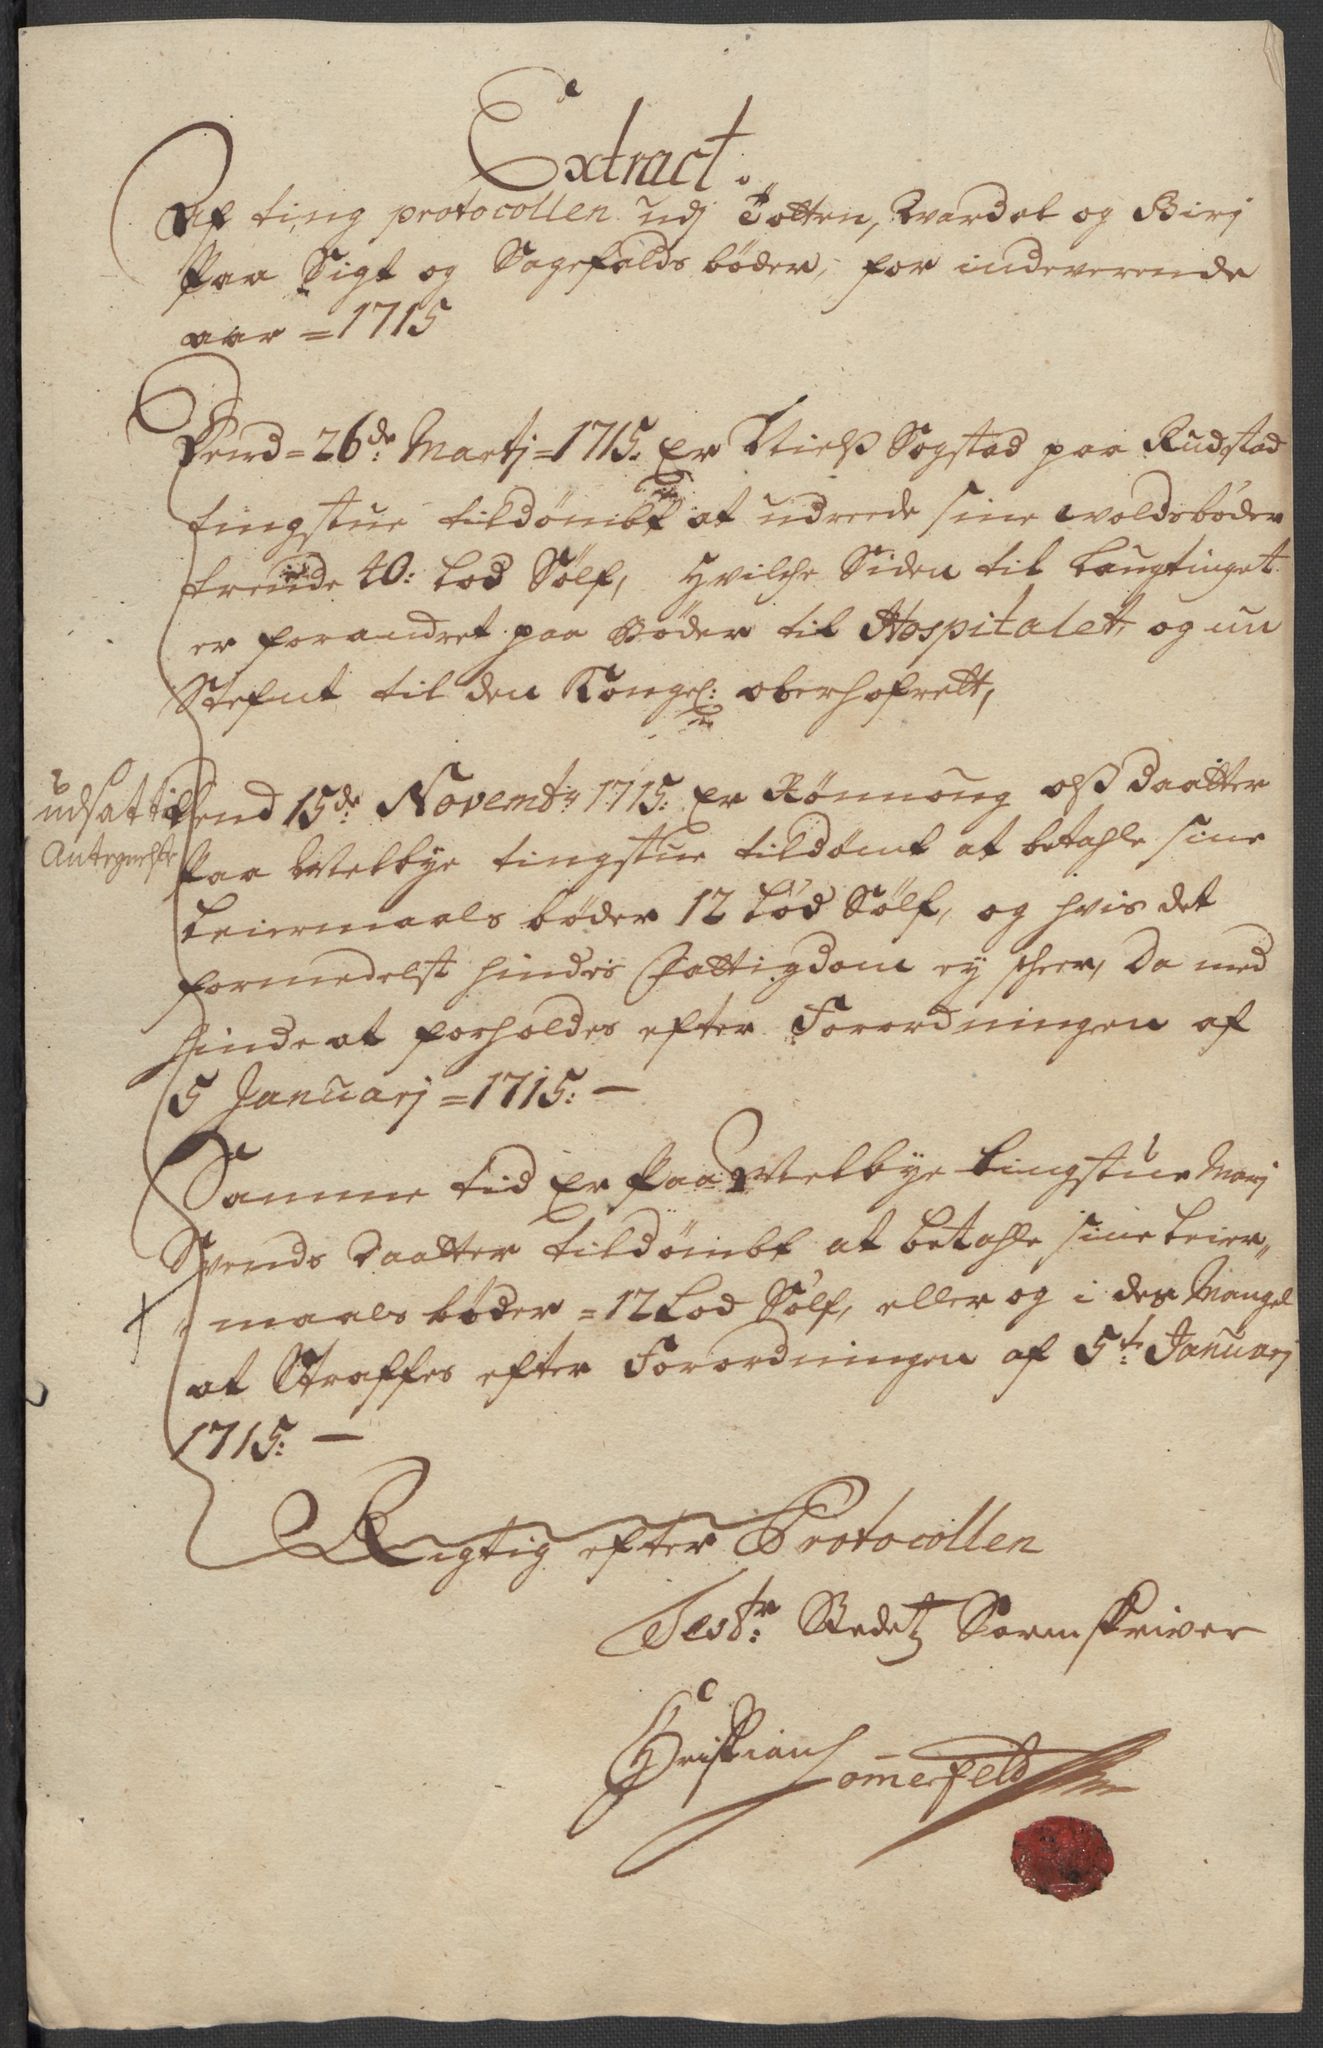 Extract.
Af ting protocollen udj Totten, Wardal og Birj
Paa Sigt og Sagefalds bøder, for indeverende
aar = 1715
Dend = 26de Martj = 1715. Er Nielß Sogstad paa Rudstad
tingstue tildømbt at udreede sine voldsbøder
trende 40: Lod Sølf, Hvilche Siden til Laugtinget
er forandret paa Bøder til Hospitalet, og nu
Stefnt til den Kongel: oberhofrett,
udsat til
Antegnelse
Dend 15de Novembr 1715: Er Rønnoug olß daatter
Paa Melbye tingstue tildømt at betahle sine
Leiermaals bøder 12 Lod Sølf, og hvis det
formedelst hindes Fattigdom ey scheer, Da med
hinde at forholdes efter Forordningen af
5 Januarj = 1715: —
Samme tid Er Paa Melbye tingstue Marj
Svends Daatter tildømbt at betahle sine Leier„
„maals bøder = 12 Lod Sølf, eller og i des Mangel
at Straffes efter Forordningen af 5te Januarj
1715: —
Rigtig efter Protocollen
Test: Stedetz Sorenskriver
Christian Somerfeld